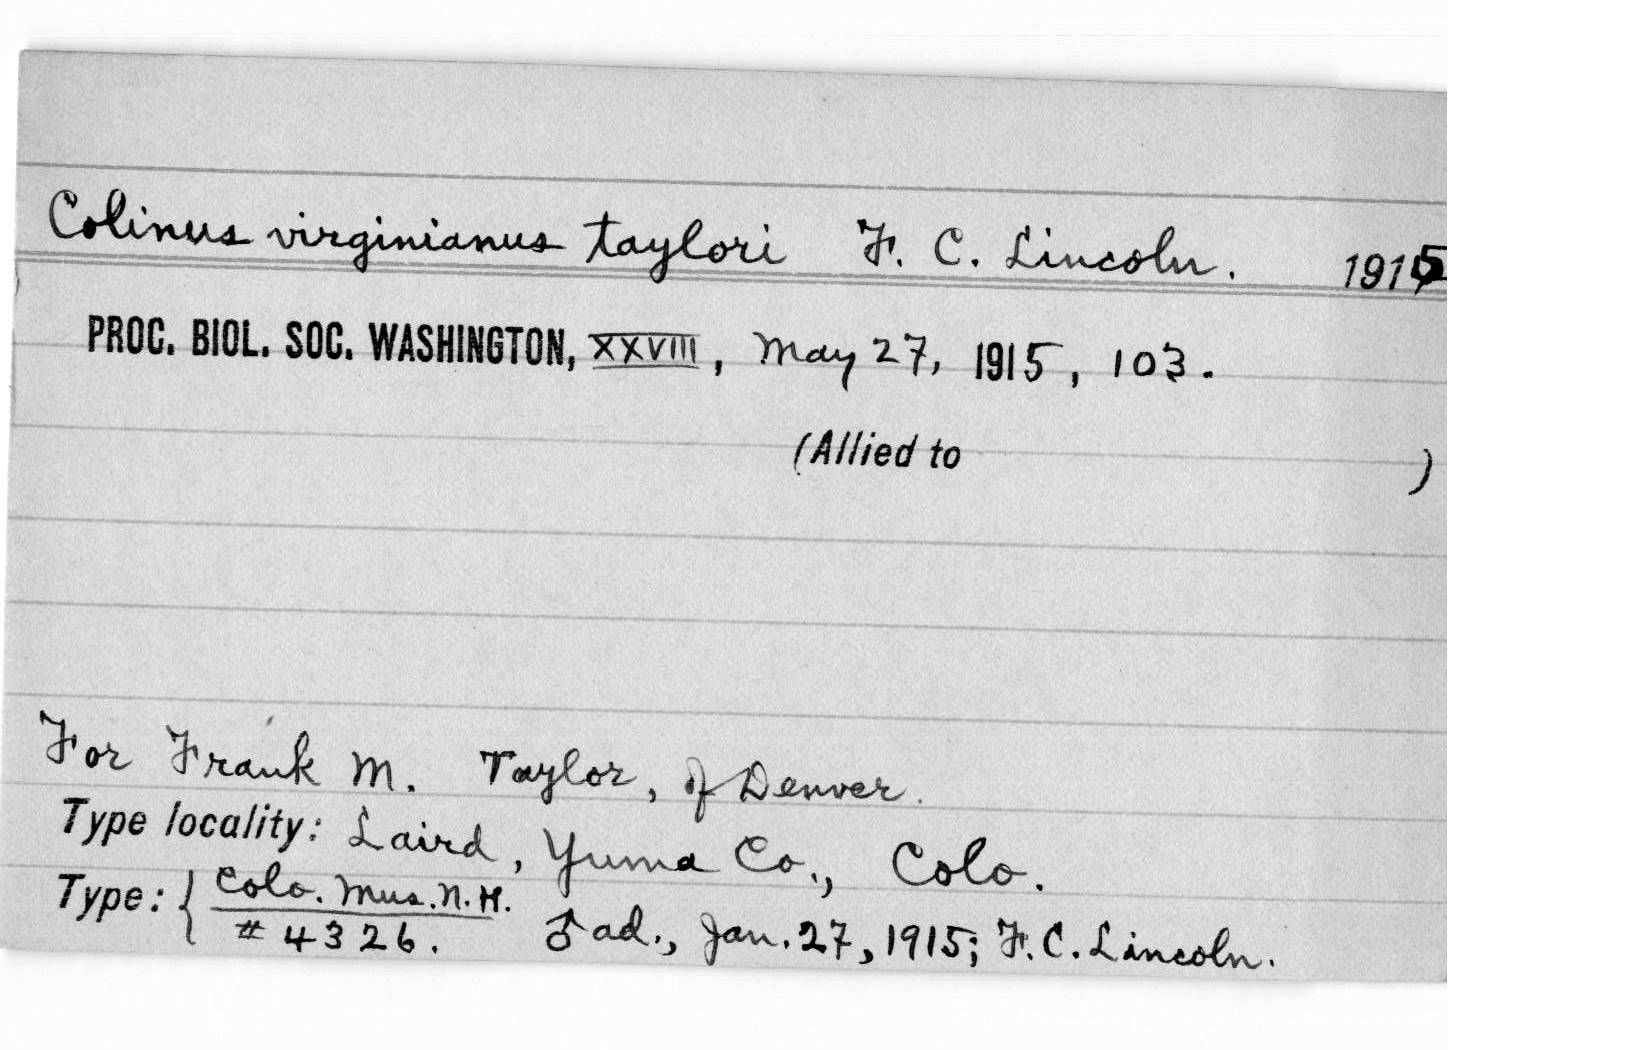 Colinus virginianus taylori F. C. Lincoln. 1915
PROC. BIOL. SOC. WASHINGTON, XXVIII, May 27, 1915, 103.
(Allied to )
For Frank M. Taylor, of Denver.
Type locality: Laird, Yuma Co., Colo.
Type: { Colo. Mus. N. H.
# 4326. ♂ ad., Jan. 27, 1915; F. C. Lincoln.